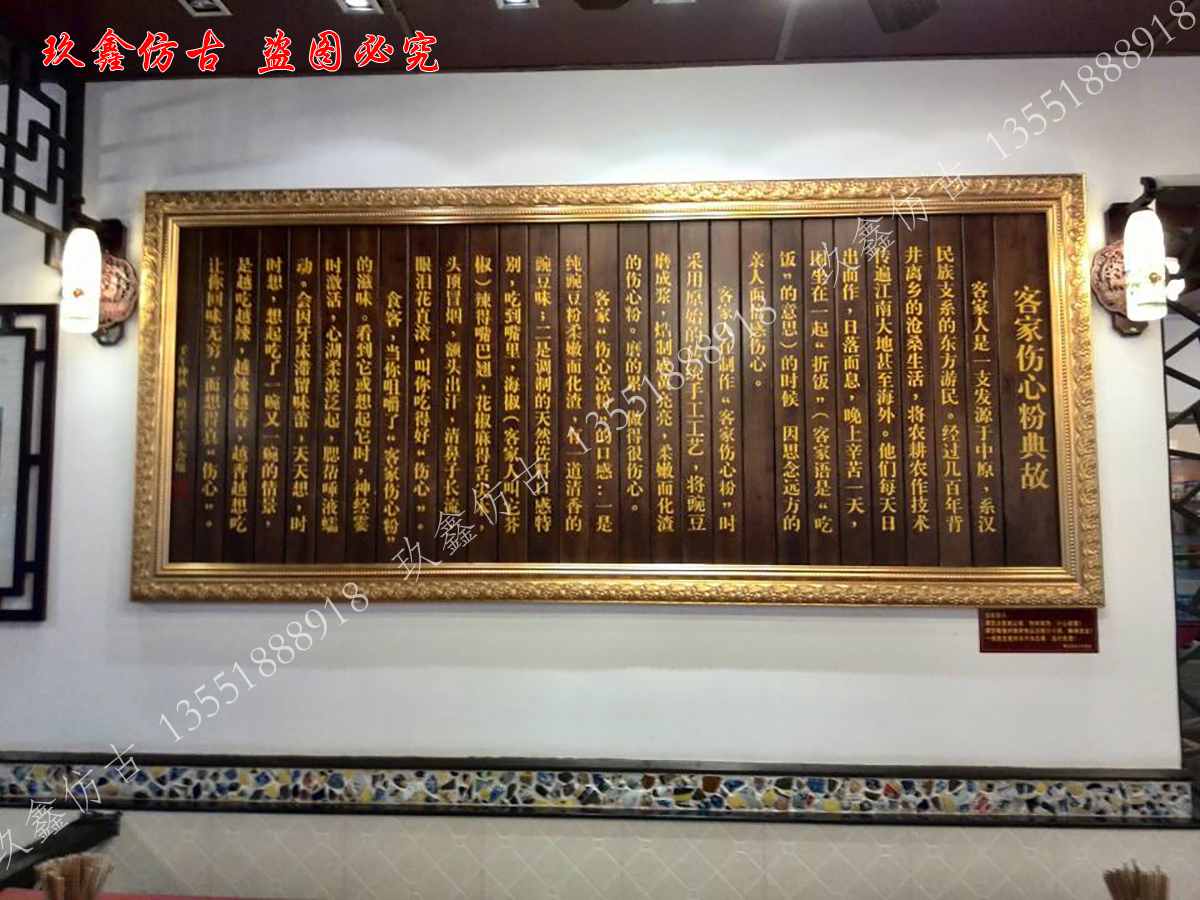 玖鑫仿古 盗图必究
客家伤心粉典故
客家人是一支发源于中原，系汉
民族支系的东方游民。经过几百年背
井离乡的沧桑生活，将农耕农作技术
传遍江南大地甚至海外。他们每天日
出而作，日落而息，晚上辛苦一天，
围坐在一起“折饭”（客家语是“吃
饭”的意思）的时候 因思念远方的
亲人而感伤心。
客家人制作“客家伤心粉”时
采用原始的纯手工工艺，将豌豆
磨成浆，熬制 亮，柔嫩而化渣
的伤心粉。磨的累，做得很伤心。
客家“伤心凉粉”的口感：一是
纯豌豆粉柔嫩而化渣，有一道清香的
豌豆味；二是调制的天然佐料口感特
别，吃到嘴里，海椒（客家人叫它芥
椒）辣得嘴巴翘，花椒麻得舌尖
头顶冒烟，额头出汗，清鼻子长流
眼泪花直滚，叫你吃得好“伤心”。
食客，当你咀嚼了“客家伤心粉”
的滋味。看到它或想起它时，神经霎
时激活，心湖柔波泛起，腮帮唾液蠕
动。会因牙床滞留味蕾，天天想，时
时想，想起吃了一碗又一碗的情景，
是越吃越辣，越辣越香，越香越想吃
让你回味无穷，而想得真“伤心”。
玖鑫仿古 13551888918
玖鑫仿古 13551888918
玖鑫仿古 13551888918